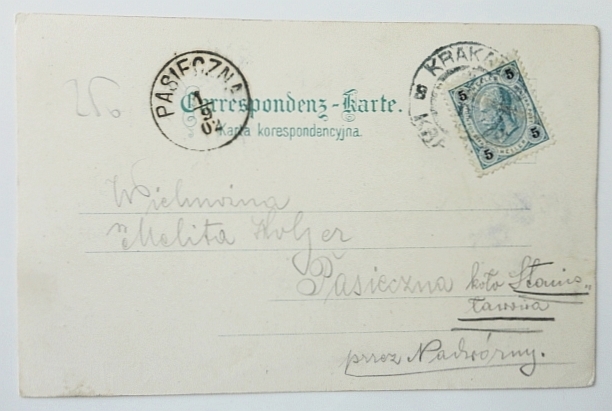 256
PASIECZNA
1
9
04
KRAKA
8
KR
5 5
5 5
Correspondenz-Karte.
Karta korespondencyjna.
Wielmożna
Melita Holzer
Pasieczna koło Stanis„
ławowa
przez Nadwórny.